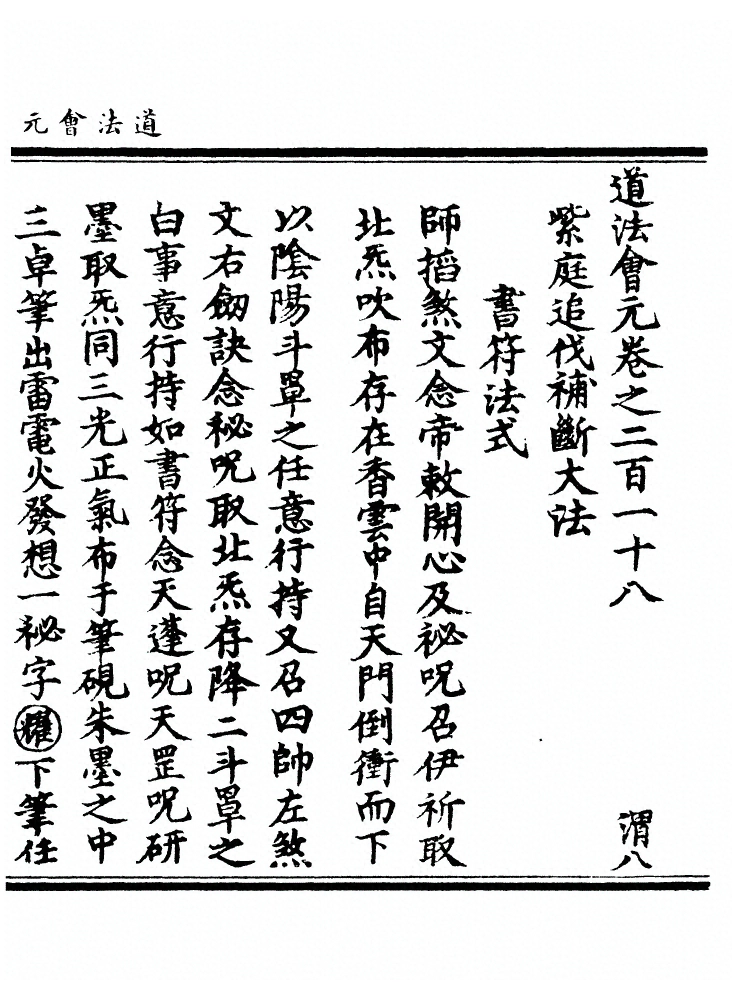 道法會元
道法會元卷之二百一十八 渭八
紫庭追伐補斷大法
書符法式
師搯煞文念帝敕開心及祕呪召伊祈取
北炁吹布存在香雲中自天門倒衝而下
以陰陽斗罩之任意行持又召四帥左煞
文右劒訣念秘呪取北炁存降二斗罩之
白事意行持如書符念天蓬呪天罡呪研
墨取炁同三光正氣布于筆硯朱墨之中
三卓筆出雷電火發想一祕字耀下筆任